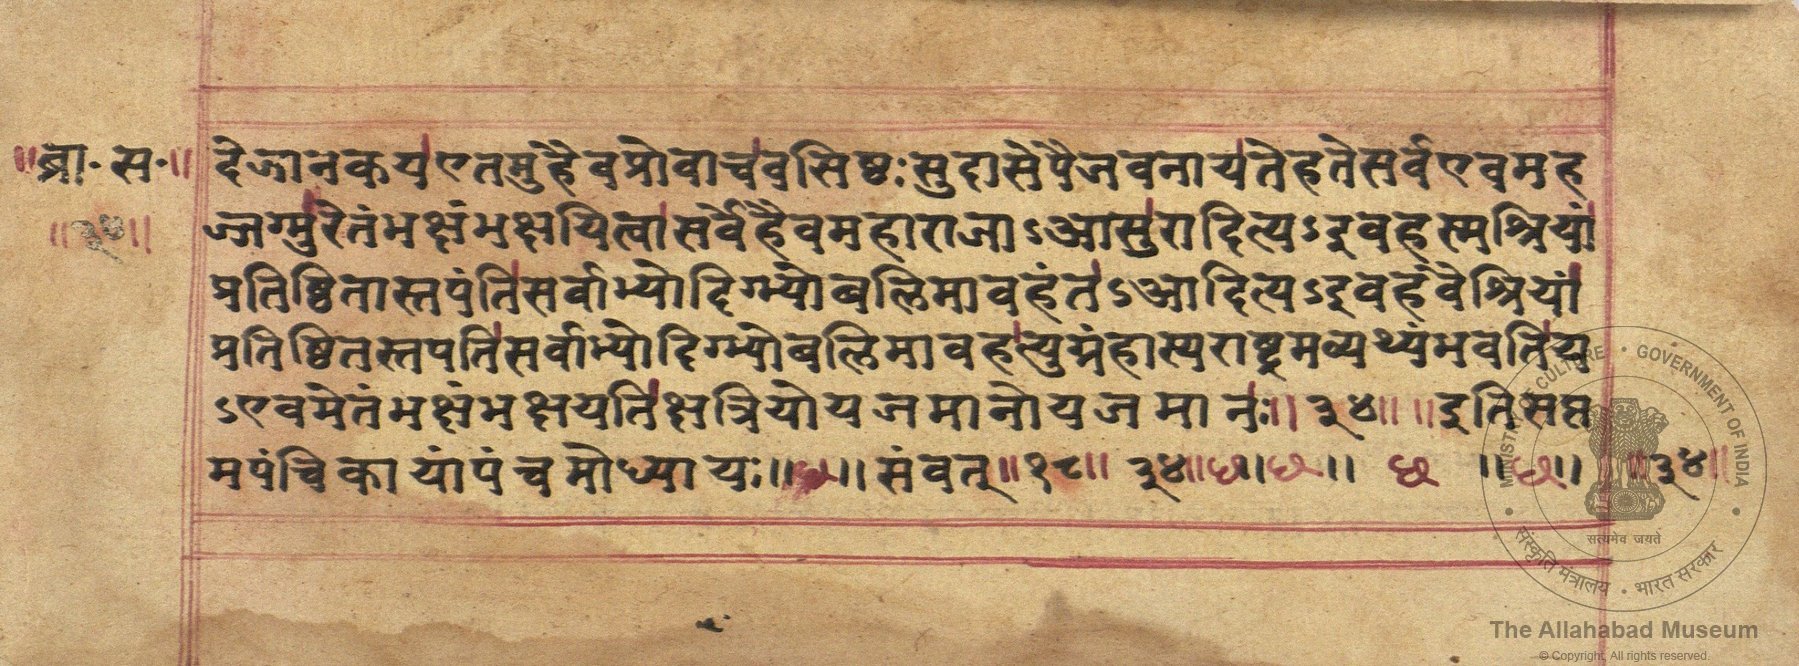 ॥ब्रा॰ स॰॥
॥३४॥
देजानकयएतमुहैवप्रोवाचवसिष्ठःसुदासेपैजवनायतेहतेसर्वएवमह
ज्जग्मुरेतंभक्षंभक्षयित्वासर्वेहैवमहाराजाऽआसुरादित्यऽइवहस्मश्रियां
प्रतिष्ठितास्तपंतिसर्वाभ्योदिग्भ्योबलिमावहंतऽआदित्यऽइवहवैश्रियां
प्रतिष्ठितस्तपतिसर्वाभ्योदिग्भ्योबलिमावहत्युग्रंहास्यराष्ट्रमव्यथ्यंभवतिय
ऽएवमेतंभक्षंभक्षयतिक्षत्रियोयजमानोयजमानः॥३४॥ ॥इतिसप्त
मपंचिकायांपंचमोध्यायः॥छ॥संवत्॥१८॥ ३४॥छ॥छ॥ छ ॥छ॥ ॥३४॥
MINISTRY OF CULTURE • GOVERNMENT OF INDIA
सत्यमेव जयते
संस्कृति मंत्रालय • भारत सरकार
The Allahabad Museum
© Copyright, All rights reserved.